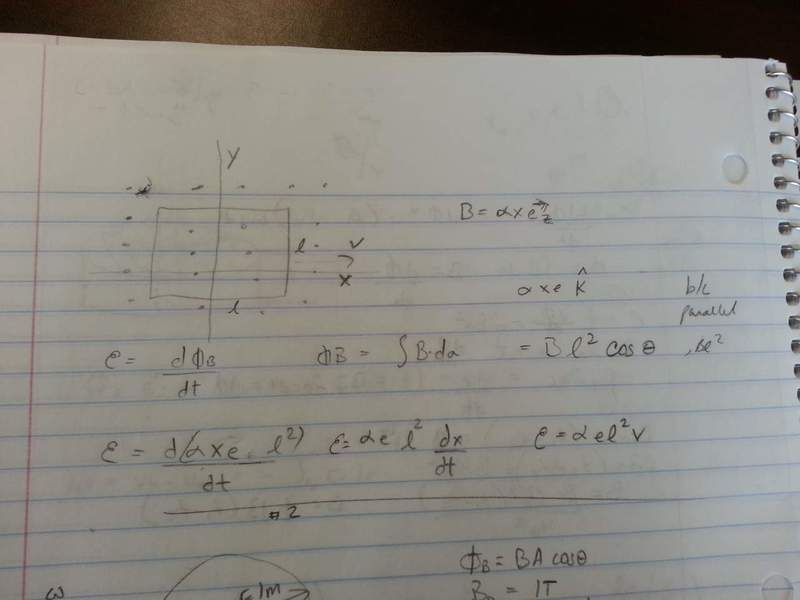 y
B = αxe⃗z
l v
x
αxe k̂ b/c
parallel
l
ε = dΦB/dt ΦB = ∫B·da = Bl² cosθ , Bl²
ε = d(αxe · l²)/dt ε = αe l² dx/dt ε = αel²v
#2
ΦB = BA cosθ
ω B = 1T